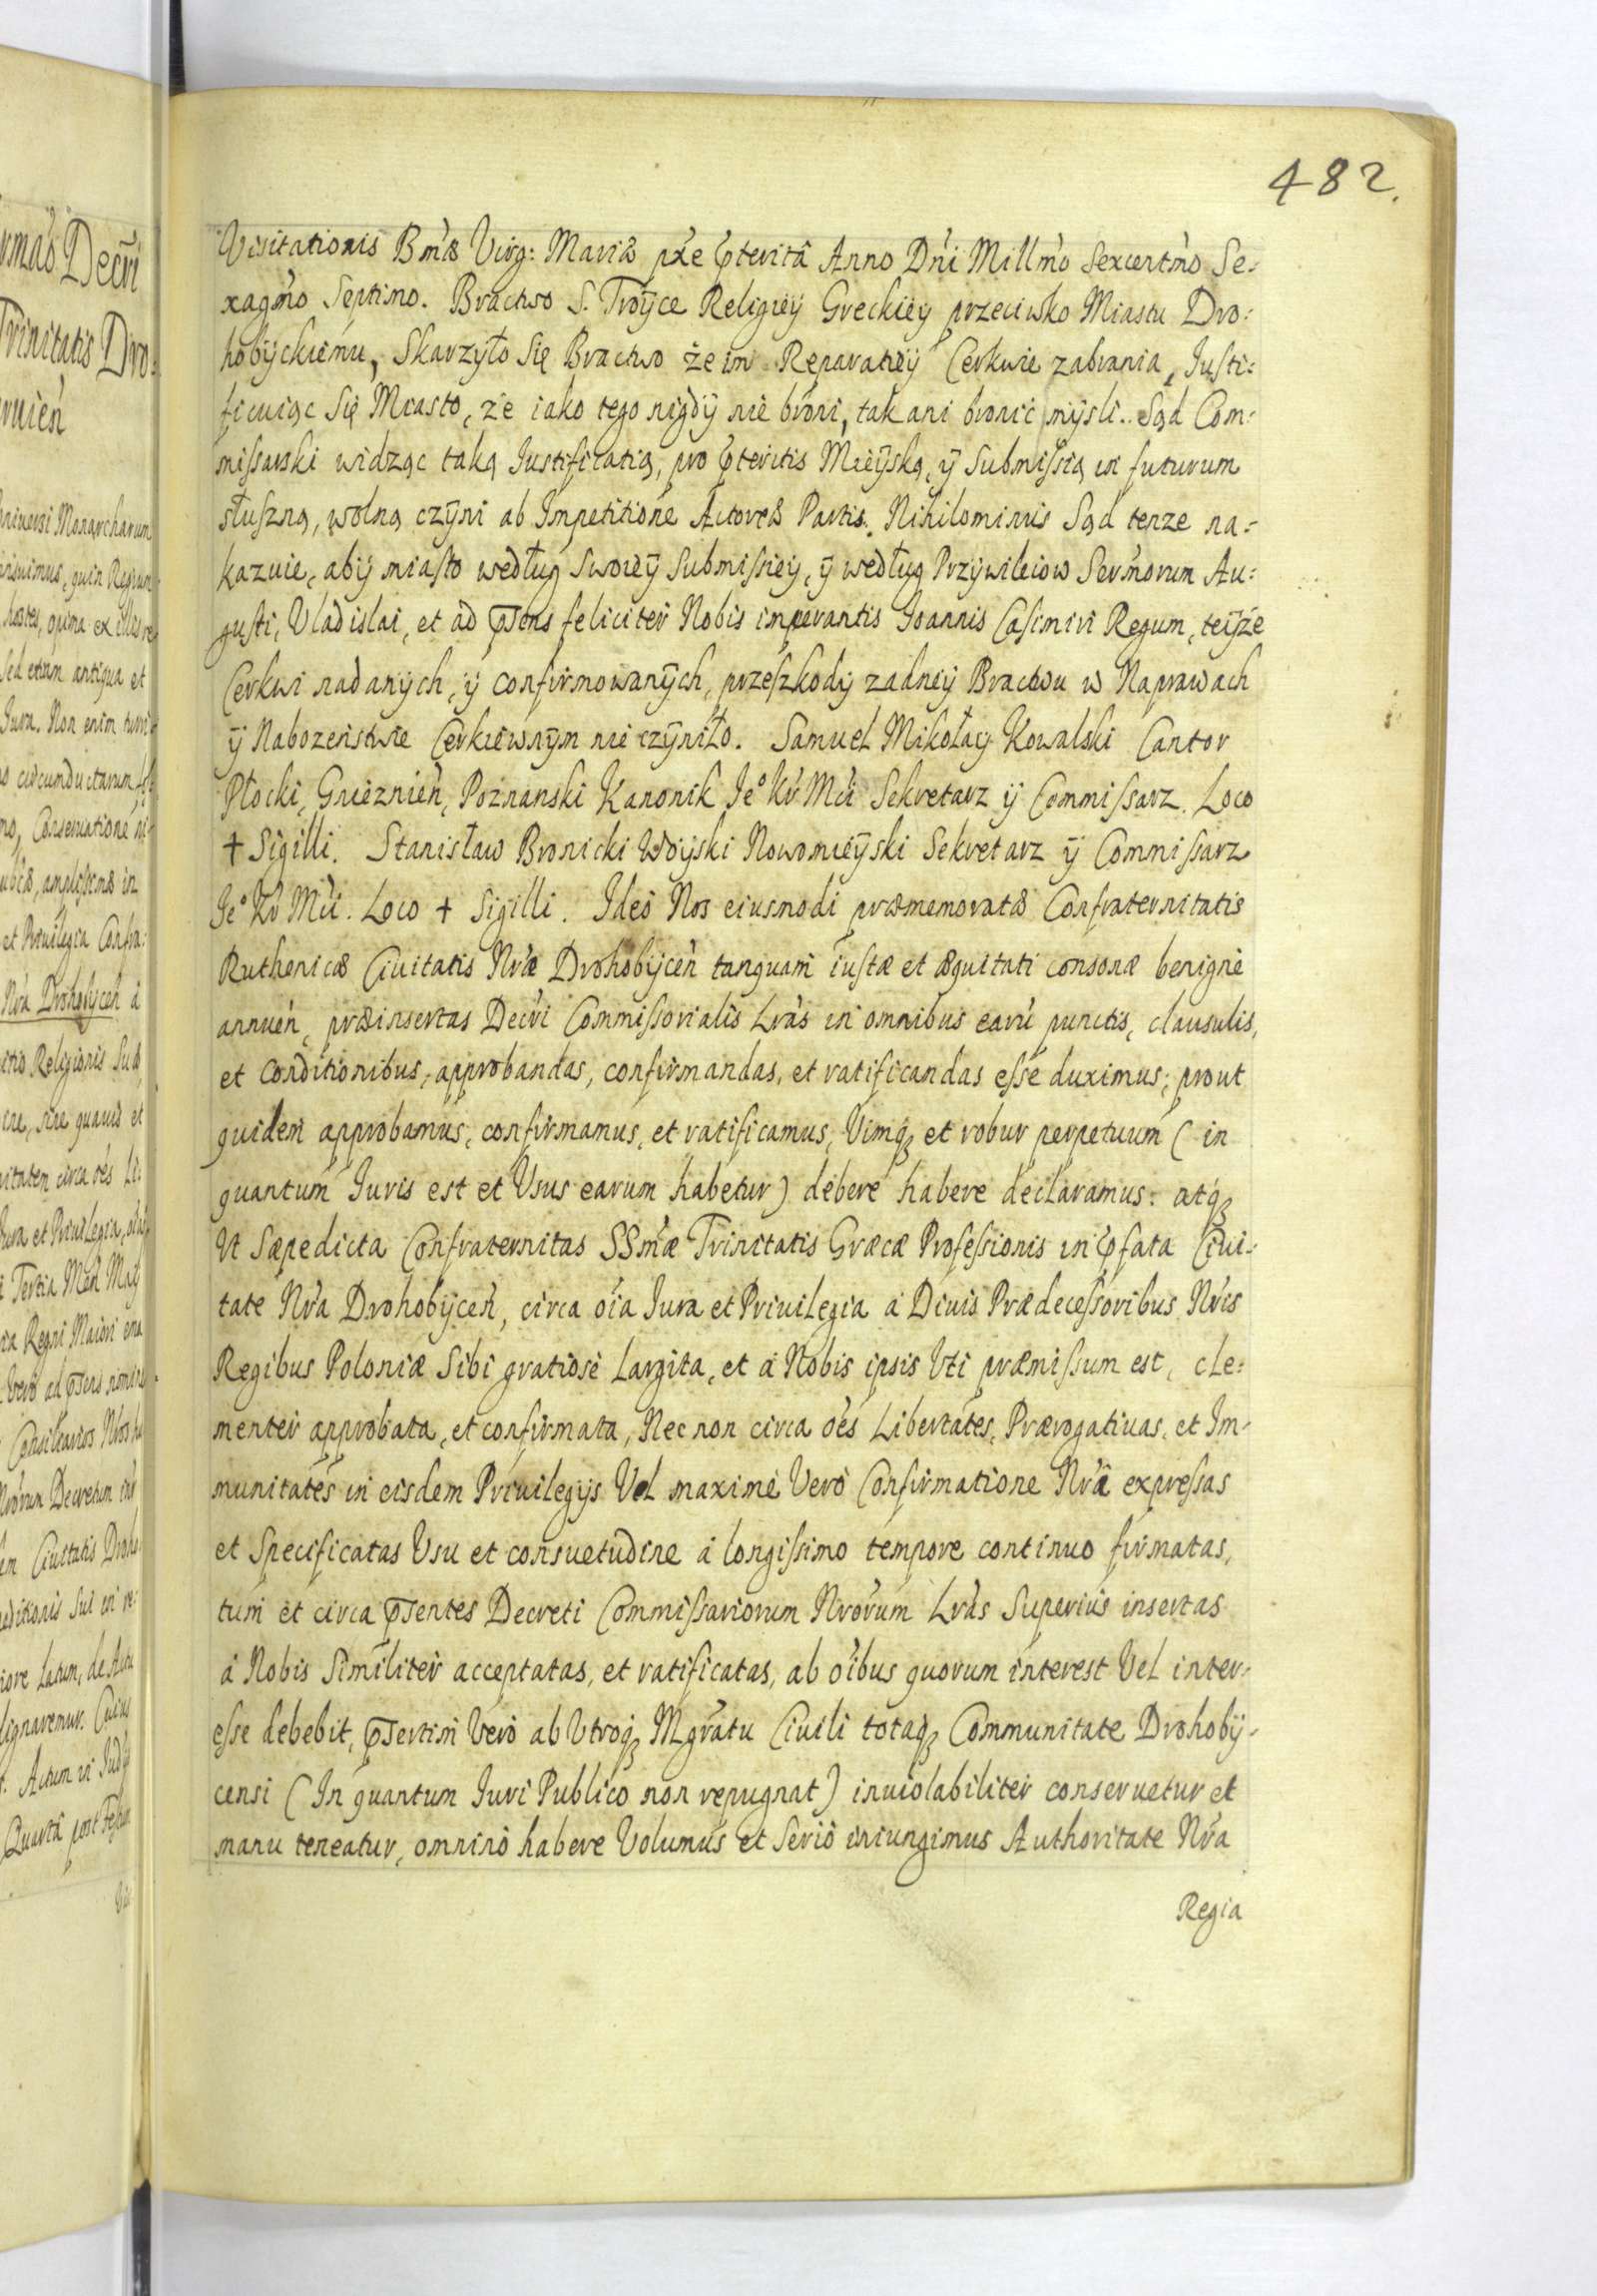 482.
Visitationis Bmæ Virg: Mariæ pxe pteritâ Anno Dńi Millm̃o Sexcentm̃o Se-
xagm̃o Septimo. Bractwo S. Troÿce Religiey Greckiey przeciwko Miastu Dro:
hobÿckiemu, Skarzyło Się Bractwo że im Reparatiey Cerkwie zabrania, Justi:
ficuiąc Się Miasto, że iako tego nigdÿ nie broni, tak ani bronić mÿsli. Sąd Com:
missarski widząc taką Justificatią, pro pteritis Mieÿską, ÿ Submissią in futurum
słuszną, wolną czÿni ab Impetitione Actoreæ Partis. Nihilominus Sąd tenze na:
kazuie, abÿ miasto według Swoieÿ Submissieÿ, ÿ według Przÿwileiow Sermorum Au:
gusti, Vladislai, et ad pns feliciter Nobis imperantis Joannis Casimiri Regum, teÿże
Cerkwi nadanÿch, ÿ confirmowanÿch, przeszkodÿ zadneÿ Bractwu w Naprawach
ÿ Nabozenstwie Cerkiewnÿm nie czÿniło. Samuel Mikołaÿ Kowalski Cantor
Płocki, Gnieznień, Poznanski Kanonik Je° Kr Mći Sekretarz ÿ Commissarz. Loco
+ Sigilli. Stanisław Bronicki Woÿski Nowomieÿski Sekretarz ÿ Commissarz
Je° Kr Mći. Loco + Sigilli. Ideo Nos eiusmodi præmemoratæ Confraternitatis
Ruthenicæ Ciuitatis Nræ Drohobÿceń tanquam iustæ et æquitati consonæ benigne
annueń, præinsertas Decri Commissorialis Lras in omnibus earũ punctis, clausulis,
et conditionibus, approbandas, confirmandas, et ratificandas esse duximus; prout
quidem approbamus, confirmamus, et ratificamus, Vimq; et robur perpetuum (in
quantum Juris est et Usus earum habetur) debere habere declaramus: atq;
Ut Sæpedicta Confraternitas SSmæ Trinitatis Græcæ Professionis in pfata Ciui-
tate Nra Drohobÿceń, circa oia Jura et Priuilegia á Diuis Prædecessoribus Nris
Regibus Poloniæ Sibi gratiose Largita, et á Nobis ipsis Uti præmissum est, cle:
menter approbata, et confirmata, Nec non circa oes Libertates, Prærogatiuas, et Im-
munitates in eisdem Priuilegijs Vel maxime Vero Confirmatione Nrâ expressas
et Specificatas Usu et consuetudine á longissimo tempore continuo firmatas,
tum et circa pntes Decreti Commissariorum Nrorum Lras Superius insertas
á Nobis Similiter acceptatas, et ratificatas, ab oibus quorum interest Vel inter-
esse debebit, psertim Vero ab Utroq; Mgratu Ciuili totaq; Communitate Drohobÿ-
censi (In quantum Juri Publico non repugnat) inuiolabiliter conseruetur et
manu teneatur, omnino habere Volumus et Serio iniungimus Authoritate Nra
Regia